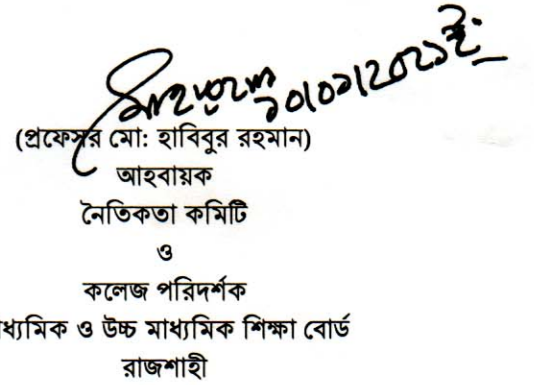 ১০/০১/২০২১ইং
(প্রফেসর মো: হাবিবুর রহমান)
আহবায়ক
নৈতিকতা কমিটি
ও
কলেজ পরিদর্শক
ধ্যমিক ও উচ্চ মাধ্যমিক শিক্ষা বোর্ড
রাজশাহী